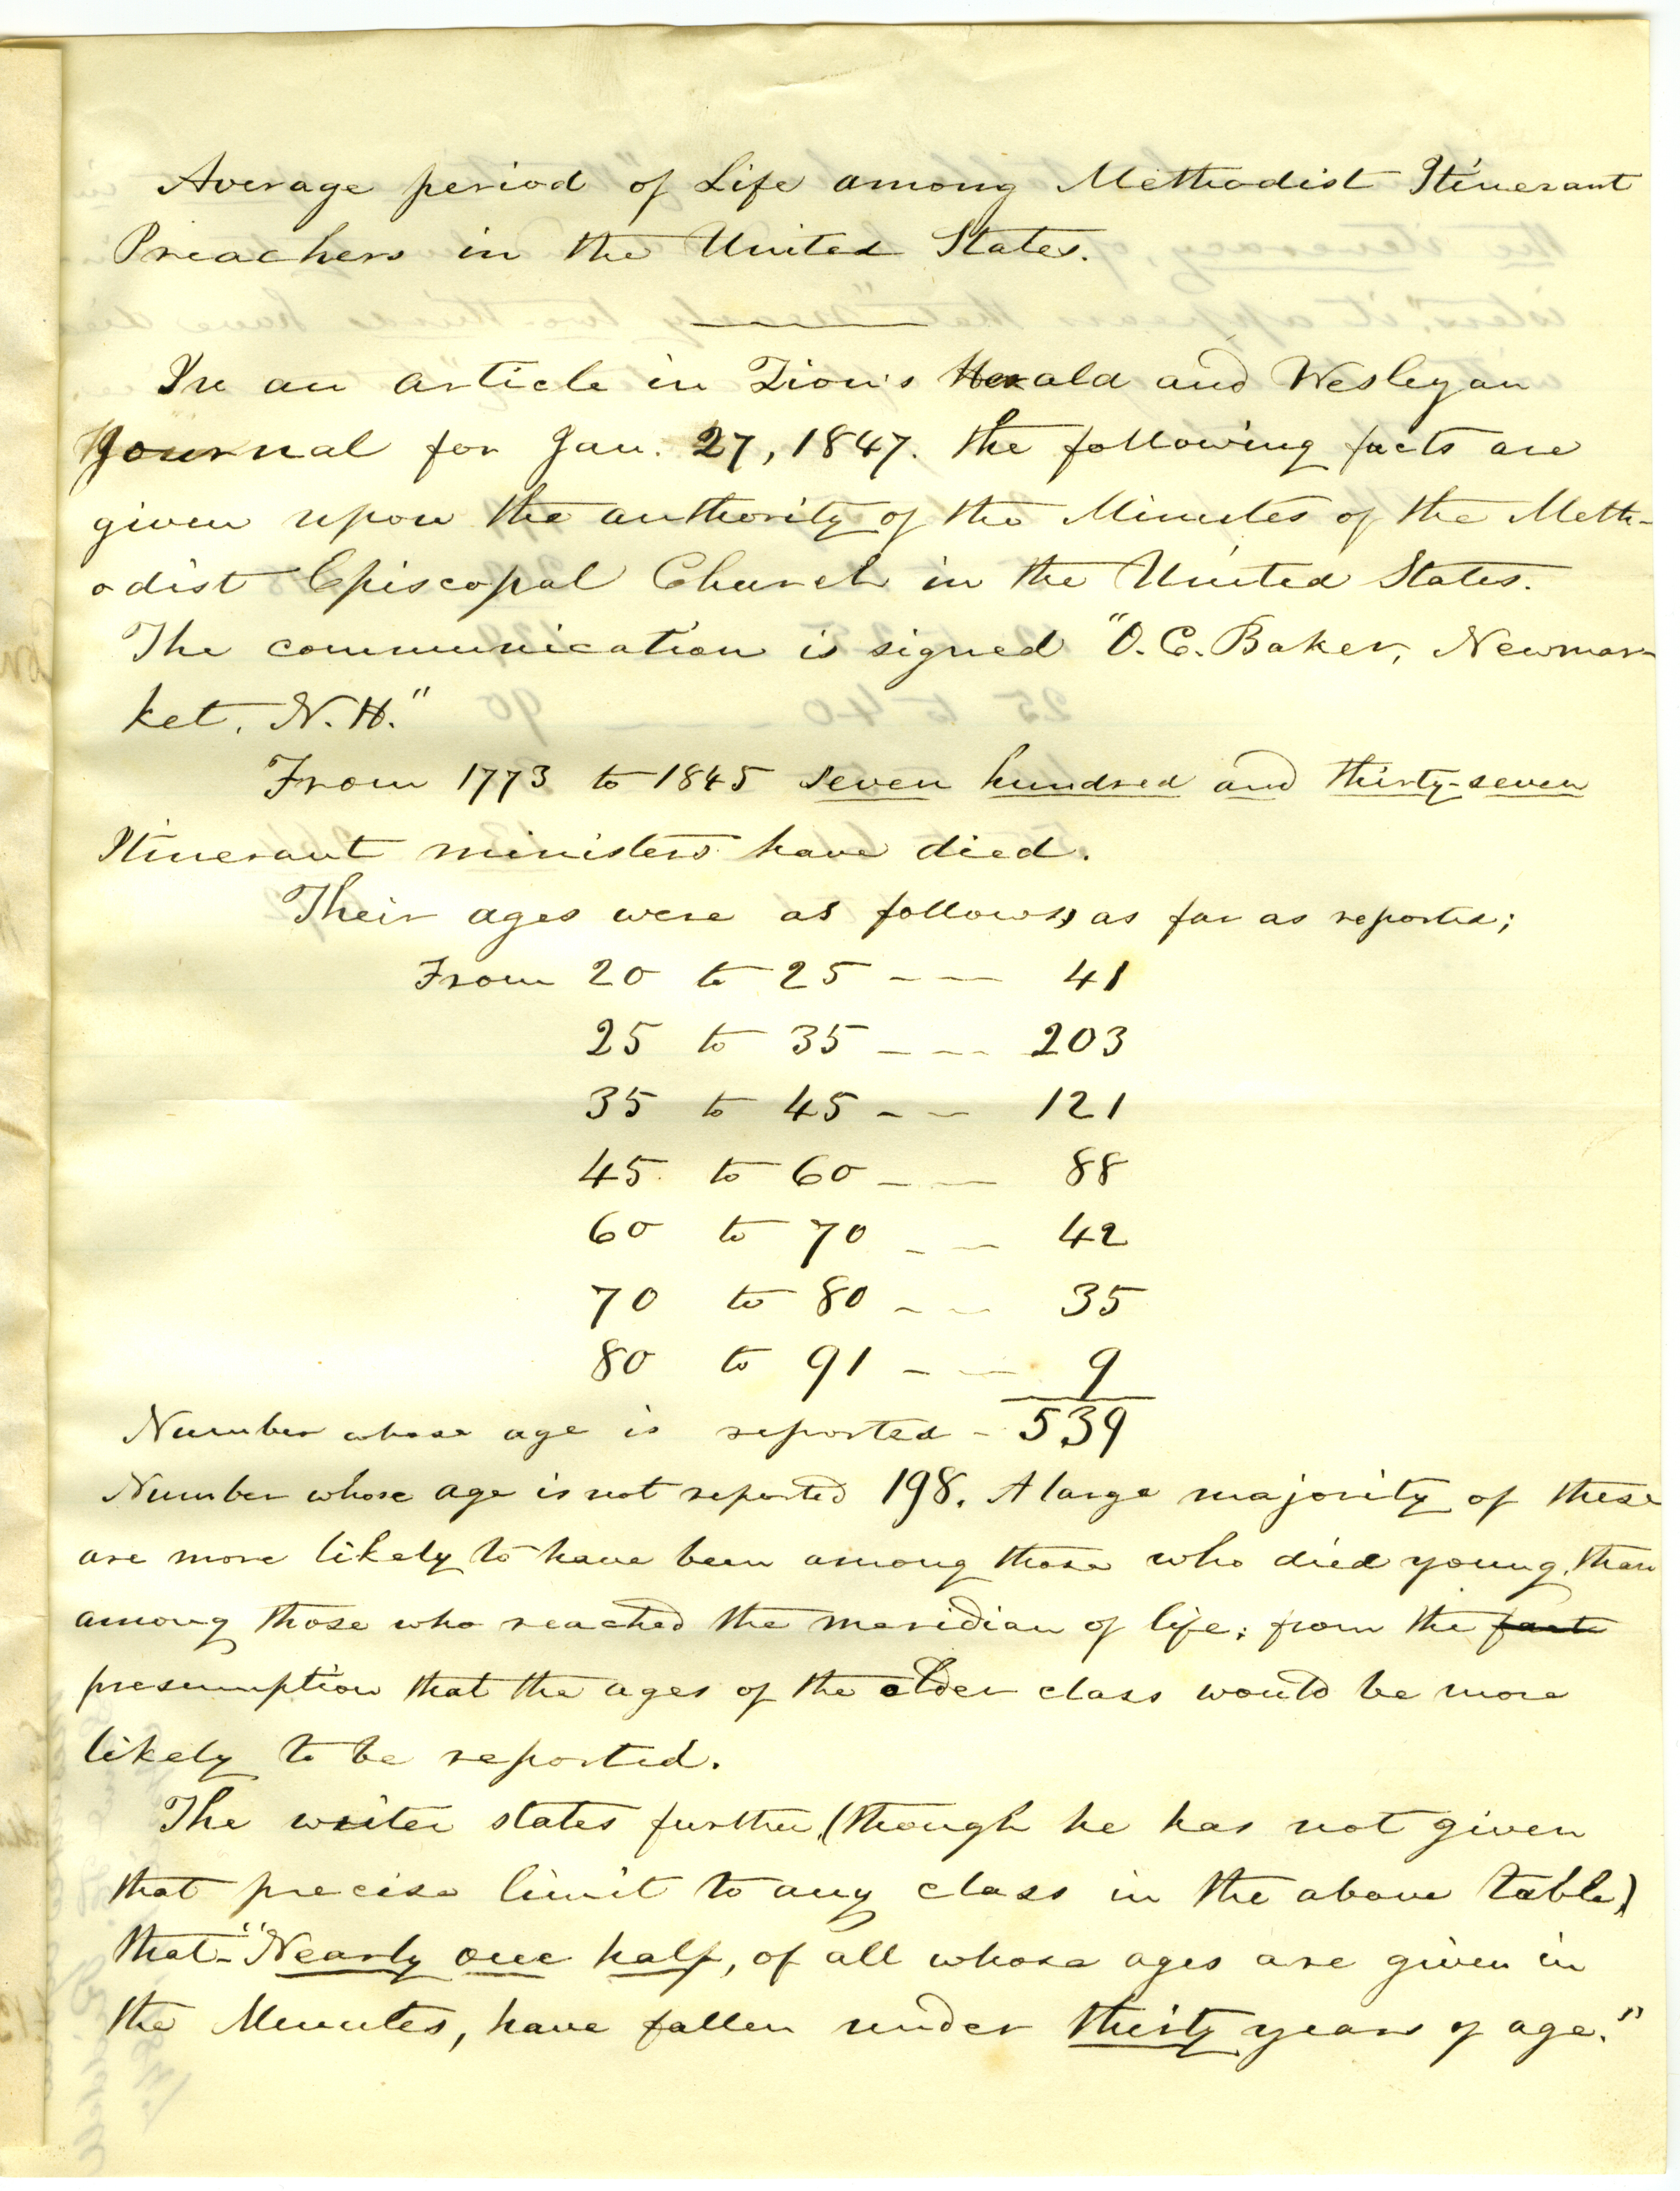 Average period of Life among Methodist Itinerant
Preachers in the United States.
In an article in Zion's Herald and Wesleyan
Journal for Jan. 27, 1847. the following facts are
given upon the authority of the Minutes of the Meth-
odist Episcopal Church in the United States.
The communication is signed "O. C. Baker, Newmar-
ket, N. H."
From 1773 to 1845 seven hundred and thirty-seven
Itinerant ministers have died.
Their ages were as follows, as far as reported;
From 20 to 25 --- 41
25 to 35 --- 203
35 to 45 -- 121
45 to 60 -- 88
60 to 70 -- 42
70 to 80 -- 35
80 to 91 -- 9
Number whose age is reported - 539
Number whose age is not reported 198. A large majority of these
are more likely to have been among those who died young, than
among those who reached the meridian of life; from the facts
presumption that the ages of the older class would be more
likely to be reported.
The writer states further, (though he has not given
that precise limit to any class in the above table)
that "Nearly one half, of all whose ages are given in
the Minutes, have fallen under thirty years of age."